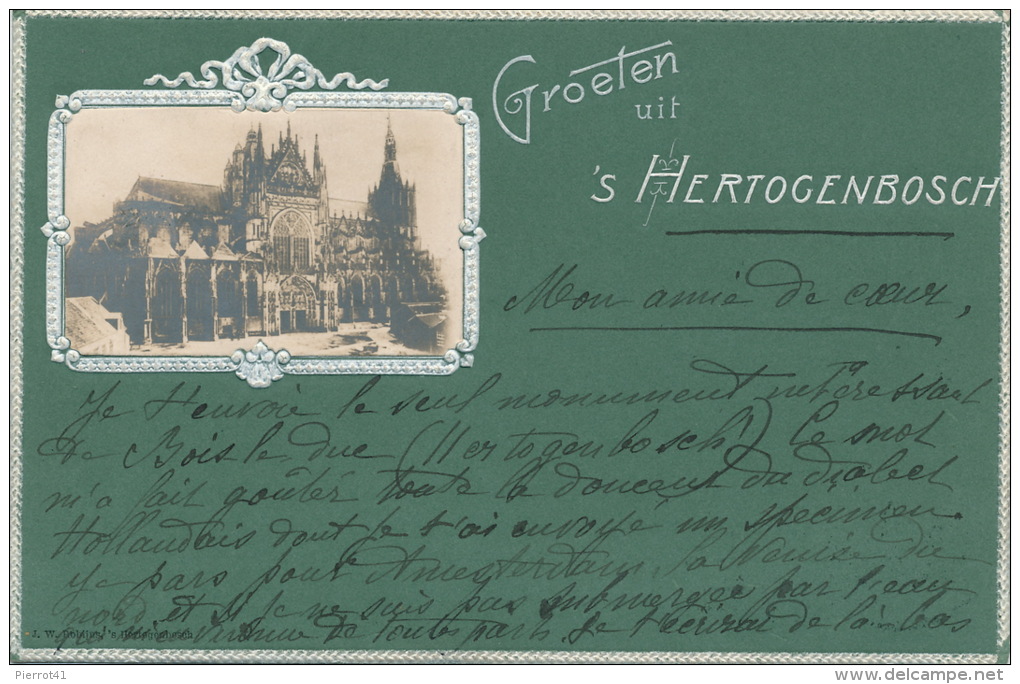 Groeten
uit
's HERTOGENBOSCH
Mon amie de cœur,
Je t'envoie le seul monument intéressant
de Bois le duc (Hertogenbosch) Ce mot
m'a fait goûter toute la douceur du dialect
Hollandais dont je t'ai envoyé un specimen.
Je pars pour Amesterdam, la Venise du
nord, et si je ne suis pas submergée par l'eau
de toutes parts je t'écrirai de là-bas
J. W. 's Hertogenbosch
Pierrot41
delcampe.net